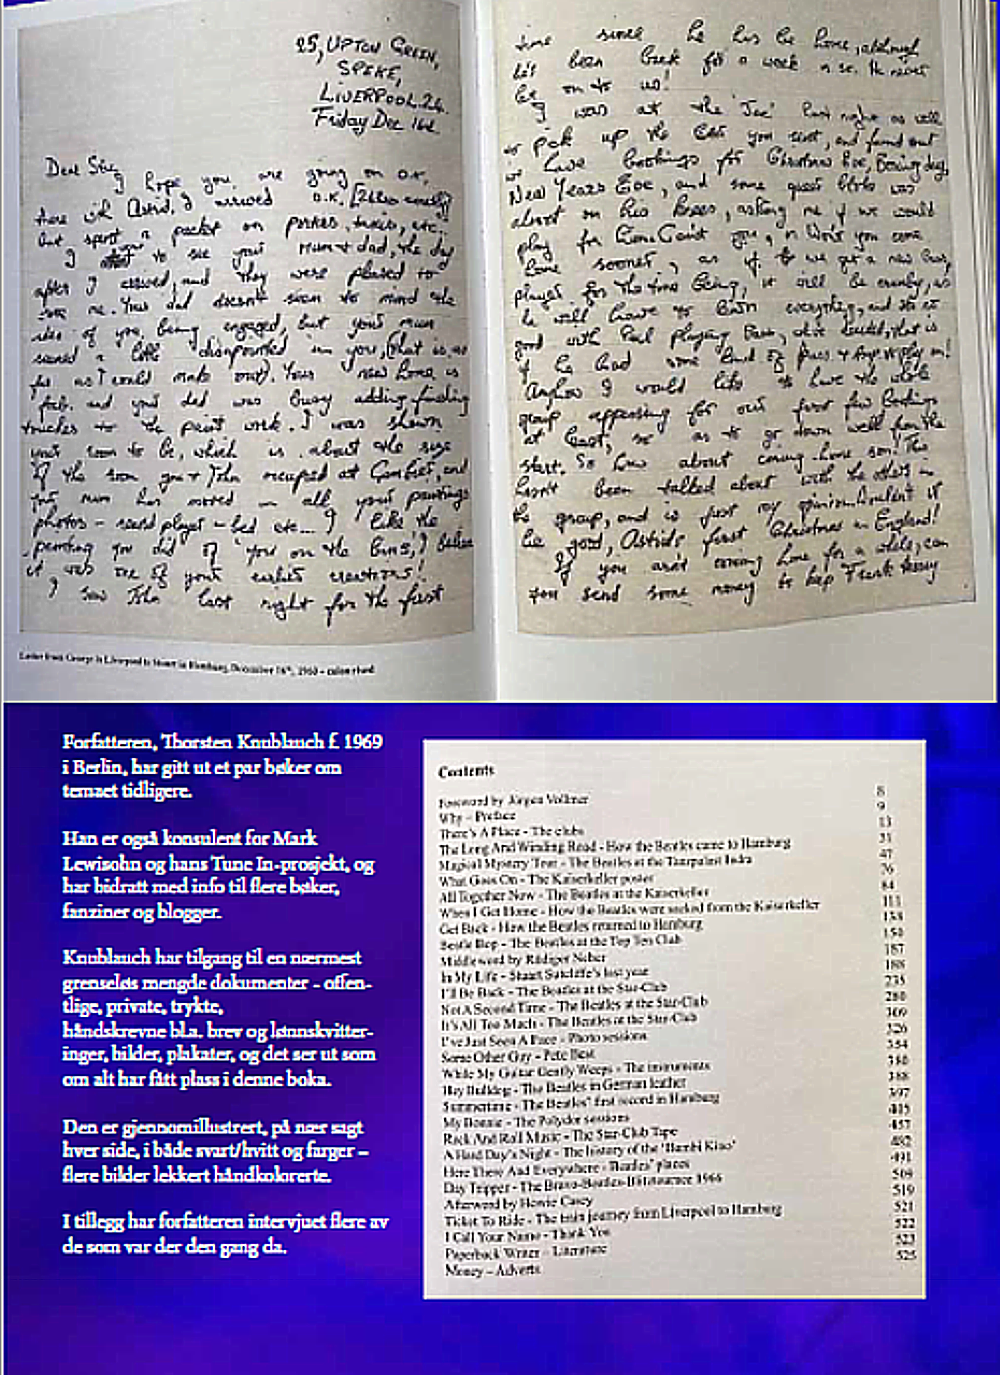 25, UPTON GREEN,
SPEKE,
LIVERPOOL 24.
Friday Dec 16th.
Dear Stu,
I hope you are going on o.k.
there with Astrid. I arrived O.K.
but spent a packet on porters, taxis, etc.
I went to see your Mum + dad, the day
after I arrived, and they were pleased to
see me. Your dad doesn't seem to mind the
idea of you being engaged, but your mum
seemed a little disappointed in you, (that is, as
far as I could make out). Your new home is
fab. and your dad was busy adding finishing
touches to the paint work. I was shown
your room to be, which is about the size
of the room, you + John occupied at Gambier, and
your mum has moved in all your paintings
photos - record player - bed etc... I like the
painting you did of 'you on the bus', I believe
it was one of your earlier creations!
I saw John last night for the first
time since he has be home, although
he's been back for a week or so. He never
let on to us!
I was at the 'Jac' last night as well
to pick up the you sent, and found out
we have bookings for Christmas Eve, Boxing day,
New Years Eve, and some queer bloke was
almost on his knees, asking me if we would
play for him. Can't you, or Won't you come
home sooner, as if we get a new bass
player for the time being, it will be crumby, as
he will have to learn everything, and it's no
good with Paul playing bass, we decided, that is
if he had some kind of bass + amp to play on!
Anyhow I would like to have the whole
group appearing for our first few bookings
at least, so as to go down well from the
start. So how about coming home son! This
hasn't been talked about with the others in
the group, and is just my opinion. Wouldn't it
be good, Astrids first Christmas in England!
If you aren't coming home for a while, can
you send some money to help Frank Hessy
Letter from George in Liverpool to Stuart in Hamburg, December 16th, 1960 –
Forfatteren, Thorsten Knublauch f. 1969
i Berlin, har gitt ut et par bøker om
temaet tidligere.
Han er også konsulent for Mark
Lewisohn og hans Tune In-prosjekt, og
har bidratt med info til flere bøker,
fanziner og blogger.
Knublauch har tilgang til en nærmest
grenseløs mengde dokumenter - offen-
tlige, private, trykte,
håndskrevne bl.a. brev og lønnskvitter-
inger, bilder, plakater, og det ser ut som
om alt har fått plass i denne boka.
Den er gjennomillustrert, på nær sagt
hver side, i både svart/hvitt og farger –
flere bilder lekkert håndkolorerte.
I tillegg har forfatteren intervjuet flere av
de som var der den gang da.
Contents
Foreword by Jürgen Vollmer 8
Why – Preface 9
There's A Place - The clubs 13
The Long And Winding Road - How the Beatles came to Hamburg 31
Magical Mystery Tour - The Beatles at the Tanzpalast Indra 47
What Goes On - The Kaiserkeller poster 76
All Together Now - The Beatles at the Kaiserkeller 84
When I Get Home - How the Beatles were sacked from the Kaiserkeller 111
Get Back - How the Beatles returned to Hamburg 138
Beatle Bop - The Beatles at the Top Ten Club 150
Middleword by Rüdiger Neber 187
In My Life - Stuart Sutcliffe's last year 188
I'll Be Back - The Beatles at the Star-Club 235
Not A Second Time - The Beatles at the Star-Club 280
It's All Too Much - The Beatles at the Star-Club 309
I've Just Seen A Face - Photo sessions 326
Some Other Guy - Pete Best 354
While My Guitar Gently Weeps - The instruments 380
Hey Bulldog - The Beatles in German leather 388
Summertime - The Beatles' first record in Hamburg 397
My Bonnie - The Polydor sessions 415
Rock And Roll Music - The Star-Club Tape 457
A Hard Day's Night - The history of the 'Bambi Kino' 482
Here There And Everywhere - Beatles' places 491
Day Tripper - The Bravo-Beatles-Blitztournee 1966 509
Afterword by Howie Casey 519
Ticket To Ride - The train journey from Liverpool to Hamburg 521
I Call Your Name - Thank You 522
Paperback Writer – Literature 523
Money – Adverts 525